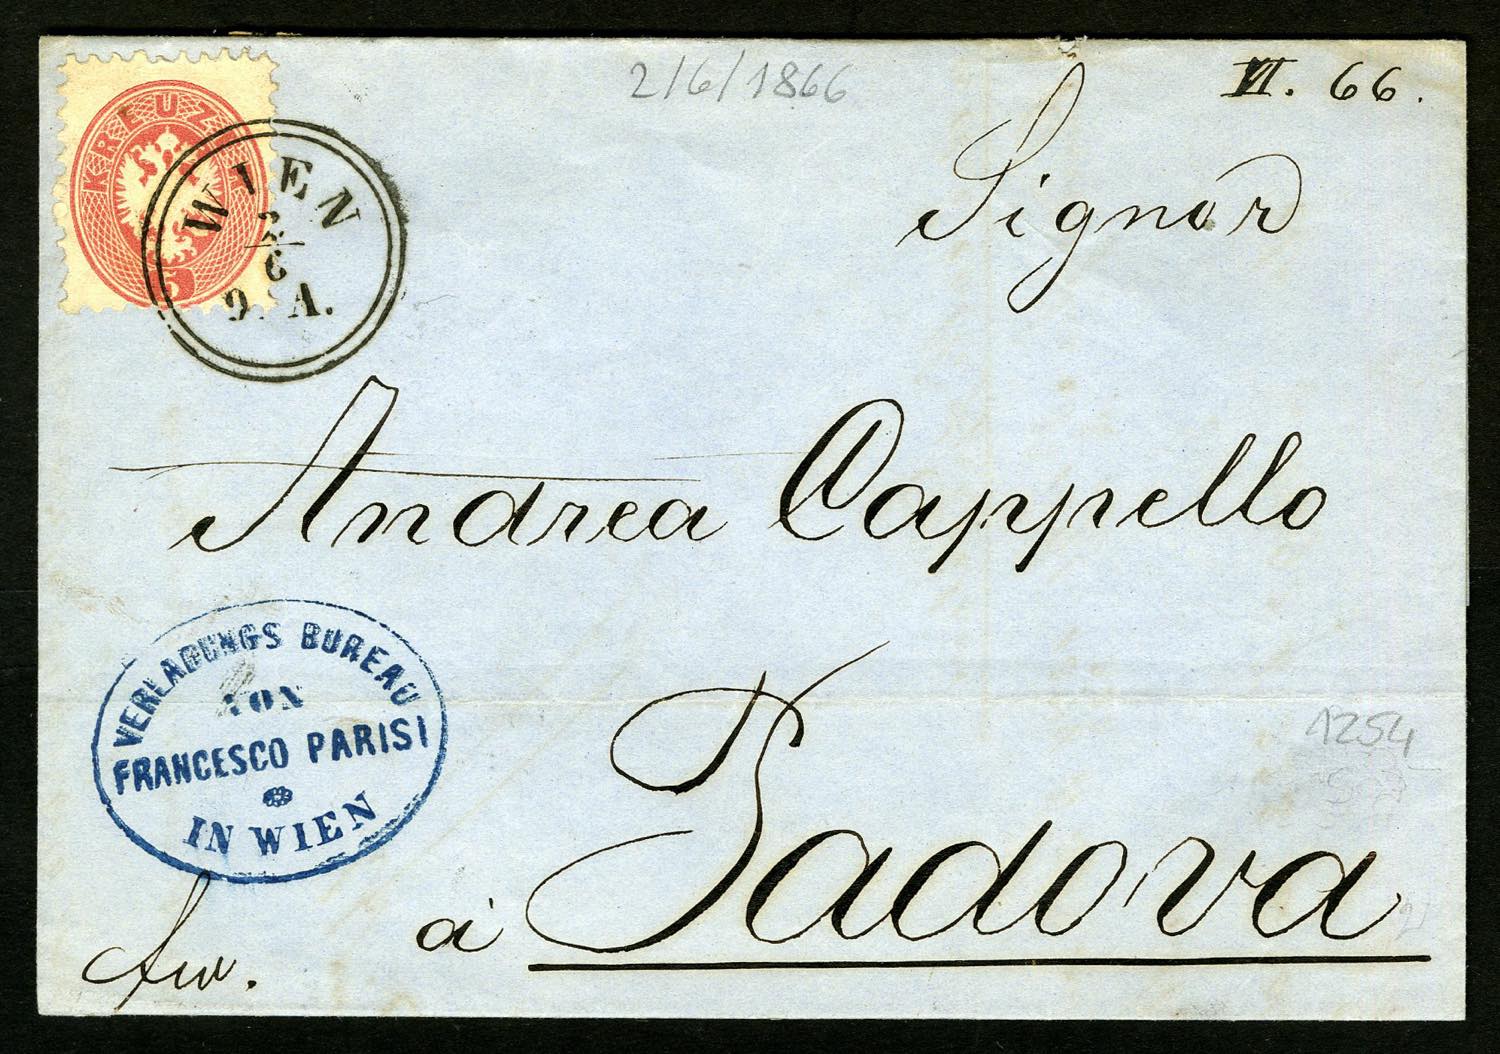 KREUZER
5
WIEN
2
6
9. A.
2/6/1866
VI. 66.
Signor
Andrea Cappello
VERLADUNGS BUREAU
VON
FRANCESCO PARISI
IN WIEN
à Padova
1254